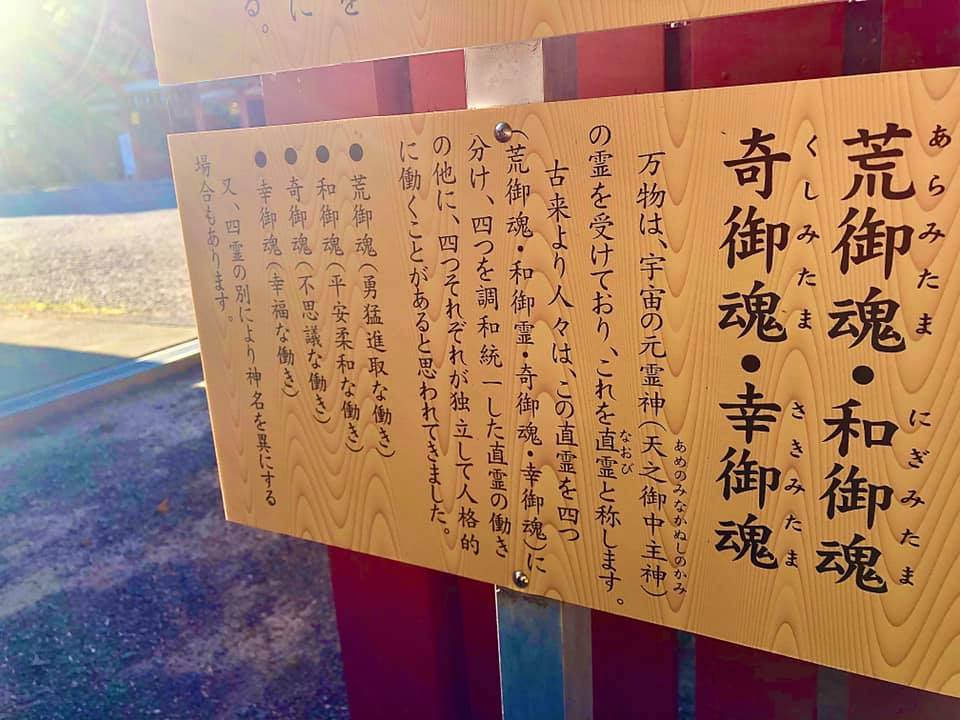 荒御魂・和御魂
あらみたま にぎみたま
奇御魂・幸御魂
くしみたま さきみたま
万物は、宇宙の元霊神(天之御中主神)
あめのみなかぬしのかみ
の霊を受けており、これを直霊と称します。
なおひ
古来より人々は、この直霊を四つ
(荒御魂・和御霊・奇御魂・幸御魂)に
分け、四つを調和統一した直霊の働き
の他に、四つそれぞれが独立して人格的
に働くことがあると思われてきました。
●荒御魂(勇猛進取な働き)
●和御魂(平安柔和な働き)
●奇御魂(不思議な働き)
●幸御魂(幸福な働き)
又、四霊の別により神名を異にする
場合もあります。
を
に
る。